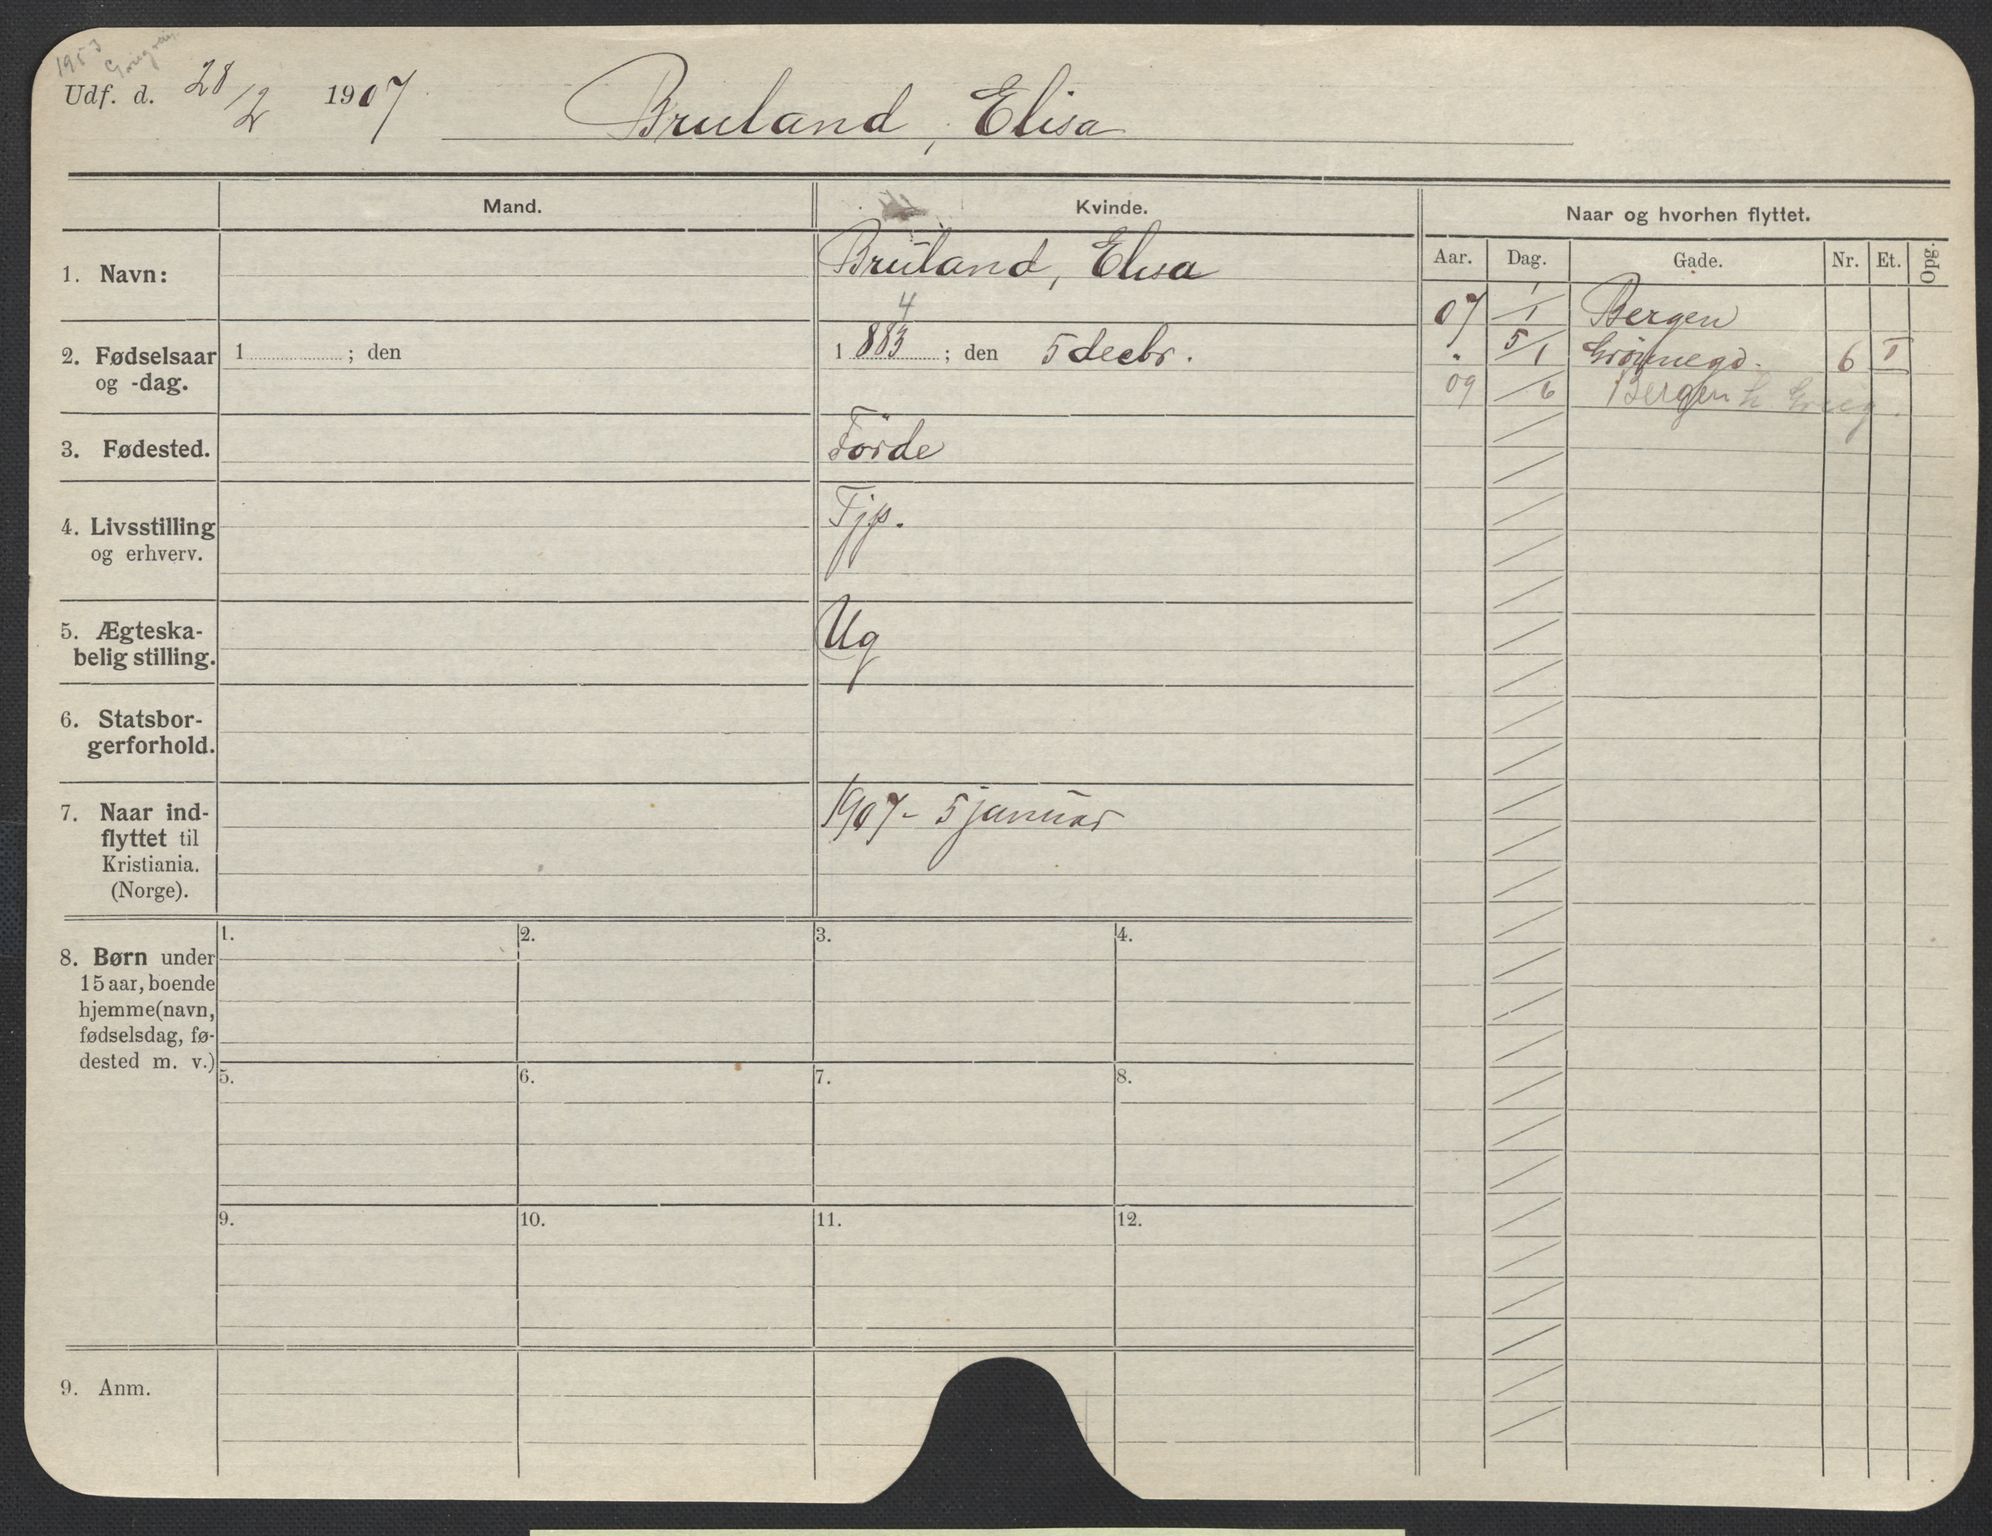 1953
Udf. d. 28/2 1907 Bruland, Elisa
Mand. Kvinde. Naar og hvorhen flyttet.
Aar. Dag. Gade. Nr. Et. Opg.
1. Navn: Bruland, Elisa
07 /1 Bergen
4
2. Fødselsaar og -dag. 1 ; den 1883 ; den 5 decbr.
" 5/1 Grönnegd. 6 I
09 /6 Bergen
3. Fødested. Förde
4. Livsstilling og erhverv. Tjp.
5. Ægteska-
belig stilling. Ug
6. Statsbor-
gerforhold.
7. Naar ind-
flyttet til
Kristiania.
(Norge). 1907 - 5 januar
8. Børn under
15 aar, boende
hjemme (navn,
fødselsdag, fø-
dested m. v.)
1. 2. 3. 4.
5. 6. 7. 8.
9. 10. 11. 12.
9. Anm.